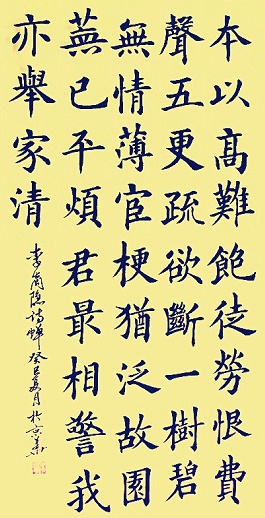 本以高難飽徒勞恨費
聲五更疏欲斷一樹碧
無情薄宦梗猶泛故園
蕪已平煩君最相警我
亦舉家清
李商隱詩蟬癸巳夏月於京華